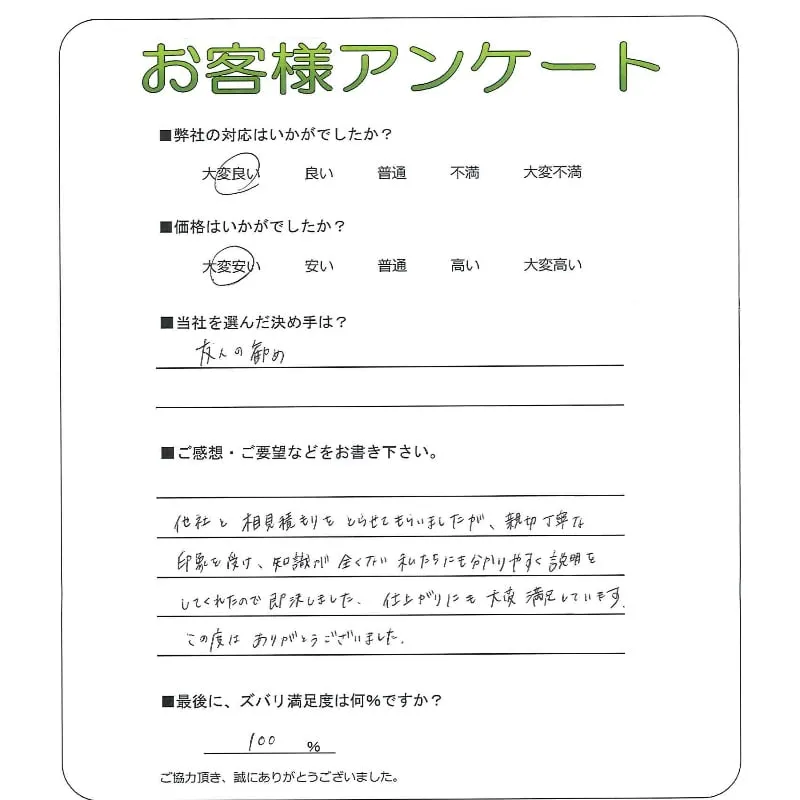 お客様アンケート
■弊社の対応はいかがでしたか？
大変良い 良い 普通 不満 大変不満
■価格はいかがでしたか？
大変安い 安い 普通 高い 大変高い
■当社を選んだ決め手は？
友人の勧め
■ご感想・ご要望などをお書き下さい。
他社と相見積もりをとらせてもらいましたが、親切丁寧な
印象を受け、知識が全くない私たちにも分かりやすく説明を
してくれたので即決しました。仕上がりにも大変満足しています。
この度はありがとうございました。
■最後に、ズバリ満足度は何％ですか？
100 ％
ご協力頂き、誠にありがとうございました。